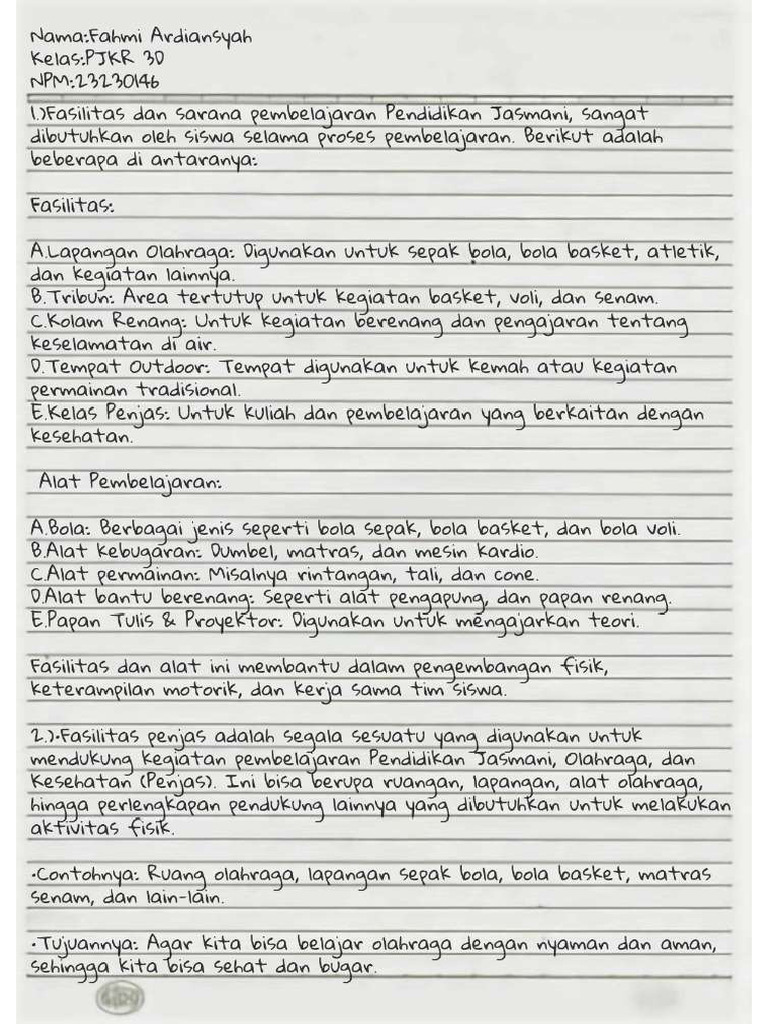 Nama:Fahmi Ardiansyah
Kelas:PJKR 3D
NPM:23230146
1.)Fasilitas dan sarana pembelajaran Pendidikan Jasmani, sangat
dibutuhkan oleh siswa selama proses pembelajaran. Berikut adalah
beberapa di antaranya:
Fasilitas:
A.Lapangan Olahraga: Digunakan untuk sepak bola, bola basket, atletik,
dan kegiatan lainnya.
B.Tribun: Area tertutup untuk kegiatan basket, voli, dan senam.
C.Kolam Renang: Untuk kegiatan berenang dan pengajaran tentang
keselamatan di air.
D.Tempat Outdoor: Tempat digunakan untuk kemah atau kegiatan
permainan tradisional.
E.Kelas Penjas: Untuk kuliah dan pembelajaran yang berkaitan dengan
kesehatan.
Alat Pembelajaran:
A.Bola: Berbagai jenis seperti bola sepak, bola basket, dan bola voli.
B.Alat kebugaran: Dumbel, matras, dan mesin kardio.
C.Alat permainan: Misalnya rintangan, tali, dan cone.
D.Alat bantu berenang: Seperti alat pengapung, dan papan renang.
E.Papan Tulis & Proyektor: Digunakan untuk mengajarkan teori.
Fasilitas dan alat ini membantu dalam pengembangan fisik,
keterampilan motorik, dan kerja sama tim siswa.
2.).Fasilitas penjas adalah segala sesuatu yang digunakan untuk
mendukung kegiatan pembelajaran Pendidikan Jasmani, Olahraga, dan
Kesehatan (Penjas). Ini bisa berupa ruangan, lapangan, alat olahraga,
hingga perlengkapan pendukung lainnya yang dibutuhkan untuk melakukan
aktivitas fisik.
•Contohnya: Ruang olahraga, lapangan sepak bola, bola basket, matras
senam, dan lain-lain.
•Tujuannya: Agar kita bisa belajar olahraga dengan nyaman dan aman,
sehingga kita bisa sehat dan bugar.